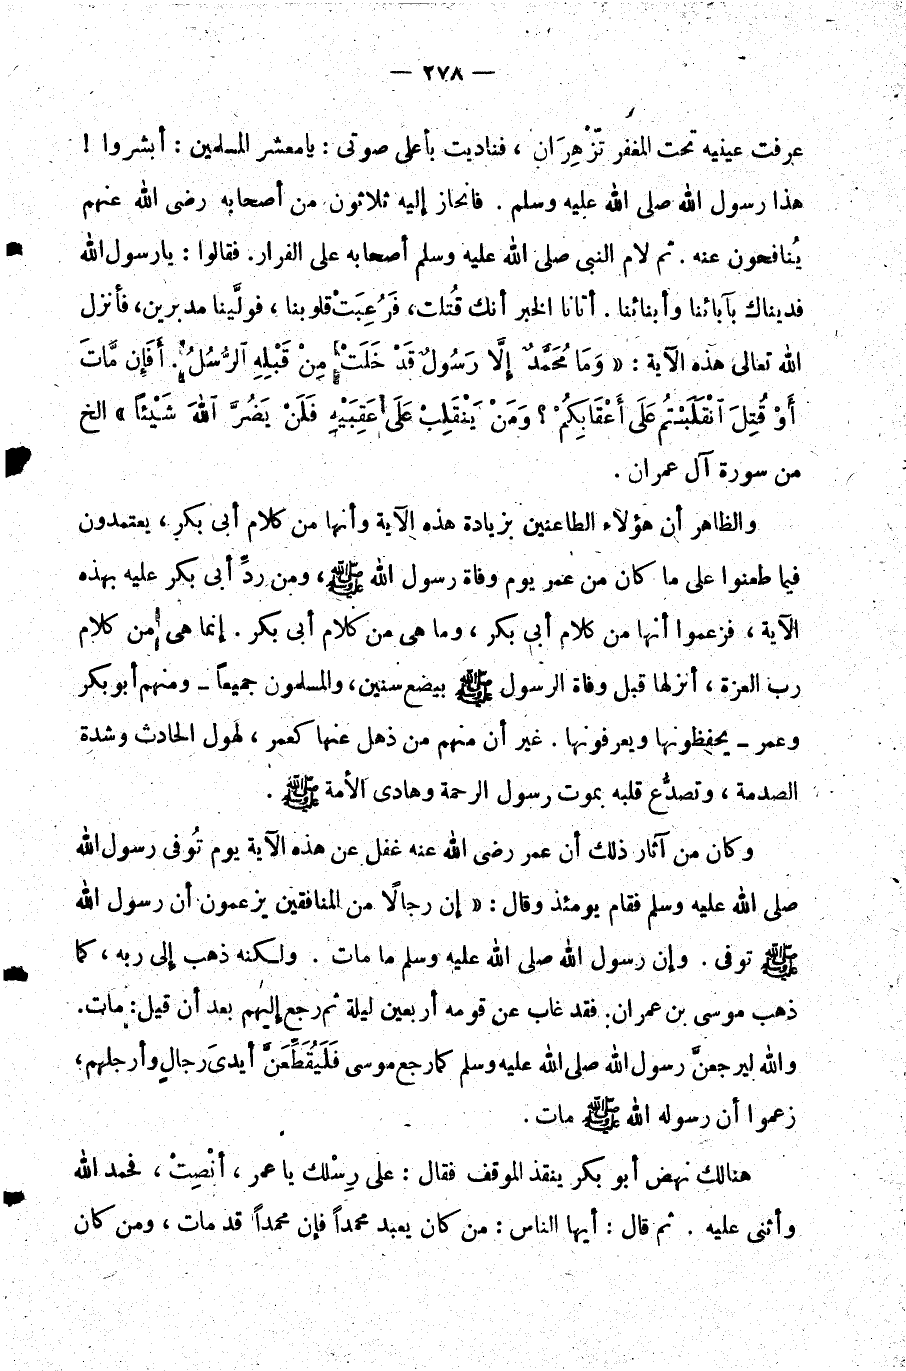 — ٢٧٨ —
عرفت عينيه تحت المغفر تَزْهِرَان ، فناديت بأعلى صوتى : يامعشر المسلمين : أبشروا !
هذا رسول الله صلى الله عليه وسلم . فانحاز إليه ثلاثون من أصحابه رضى الله عنهم
يُنافحون عنه . ثم لام النبى صلى الله عليه وسلم أصحابه على الفرار. فقالوا : يارسول الله
فديناك بآبائنا وأبنائنا . أتانا الخبر أنك قُتلت، فَرُعِبَتْ قلوبنا ، فولَّينا مدبرين، فأنزل
الله تعالى هذه الآية : « وَمَا مُحَمَّدٌ إِلَّا رَسُولٌ قَدْ خَلَتْ مِنْ قَبْلِهِ ٱلرُّسُلُ . أَفَإِن مَّاتَ
أَوْ قُتِلَ ٱنْقَلَبْتُمْ عَلَى أَعْقَابِكُمْ ؟ وَمَنْ يَنْقَلِبْ عَلَى عَقِبَيْهِ فَلَنْ يَضُرَّ ٱللهَ شَيْئاً » الخ
من سورة آل عمران .
والظاهر أن هؤلاء الطاعنين بزيادة هذه الآية وأنها من كلام أبى بكر ، يعتمدون
فيما طعنوا على ما كان من عمر يوم وفاة رسول الله ﷺ، ومن ردِّ أبى بكر عليه بهذه
الآية ، فزعموا أنها من كلام أبى بكر ، وما هى من كلام أبى بكر . إنما هى من كلام
رب العزة ، أنزلها قبل وفاة الرسول ﷺ ببضع سنين، والمسلمون جميعاً ــ ومنهم أبو بكر
وعمر ــ يحفظونها ويعرفونها . غير أن منهم من ذهل عنها كعمر ، لهول الحادث وشدة
الصدمة ، وتصدُّع قلبه بموت رسول الرحمة وهادى الأمة ﷺ .
وكان من آثار ذلك أن عمر رضى الله عنه غفل عن هذه الآية يوم تُوفى رسول الله
صلى الله عليه وسلم فقام يومئذ وقال : « إن رجالًا من المنافقين يزعمون أن رسول الله
ﷺ توفى . وإن رسول الله صلى الله عليه وسلم ما مات . ولكنه ذهب إلى ربه ، كما
ذهب موسى بن عمران. فقد غاب عن قومه أربعين ليلة ثم رجع إليهم بعد أن قيل: مات.
والله ليرجعنَّ رسول الله صلى الله عليه وسلم كما رجع موسى فَلَيُقَطِّعَنَّ أيدىَ رجالٍ وأرجلهم،
زعموا أن رسوله الله ﷺ مات .
هنالك نهض أبو بكر ينقذ الموقف فقال : على رِسْلك يا عمر ، أنْصِتْ ، فحمد الله
وأثنى عليه . ثم قال : أيها الناس : من كان يعبد محمداً فإن محمداً قد مات ، ومن كان